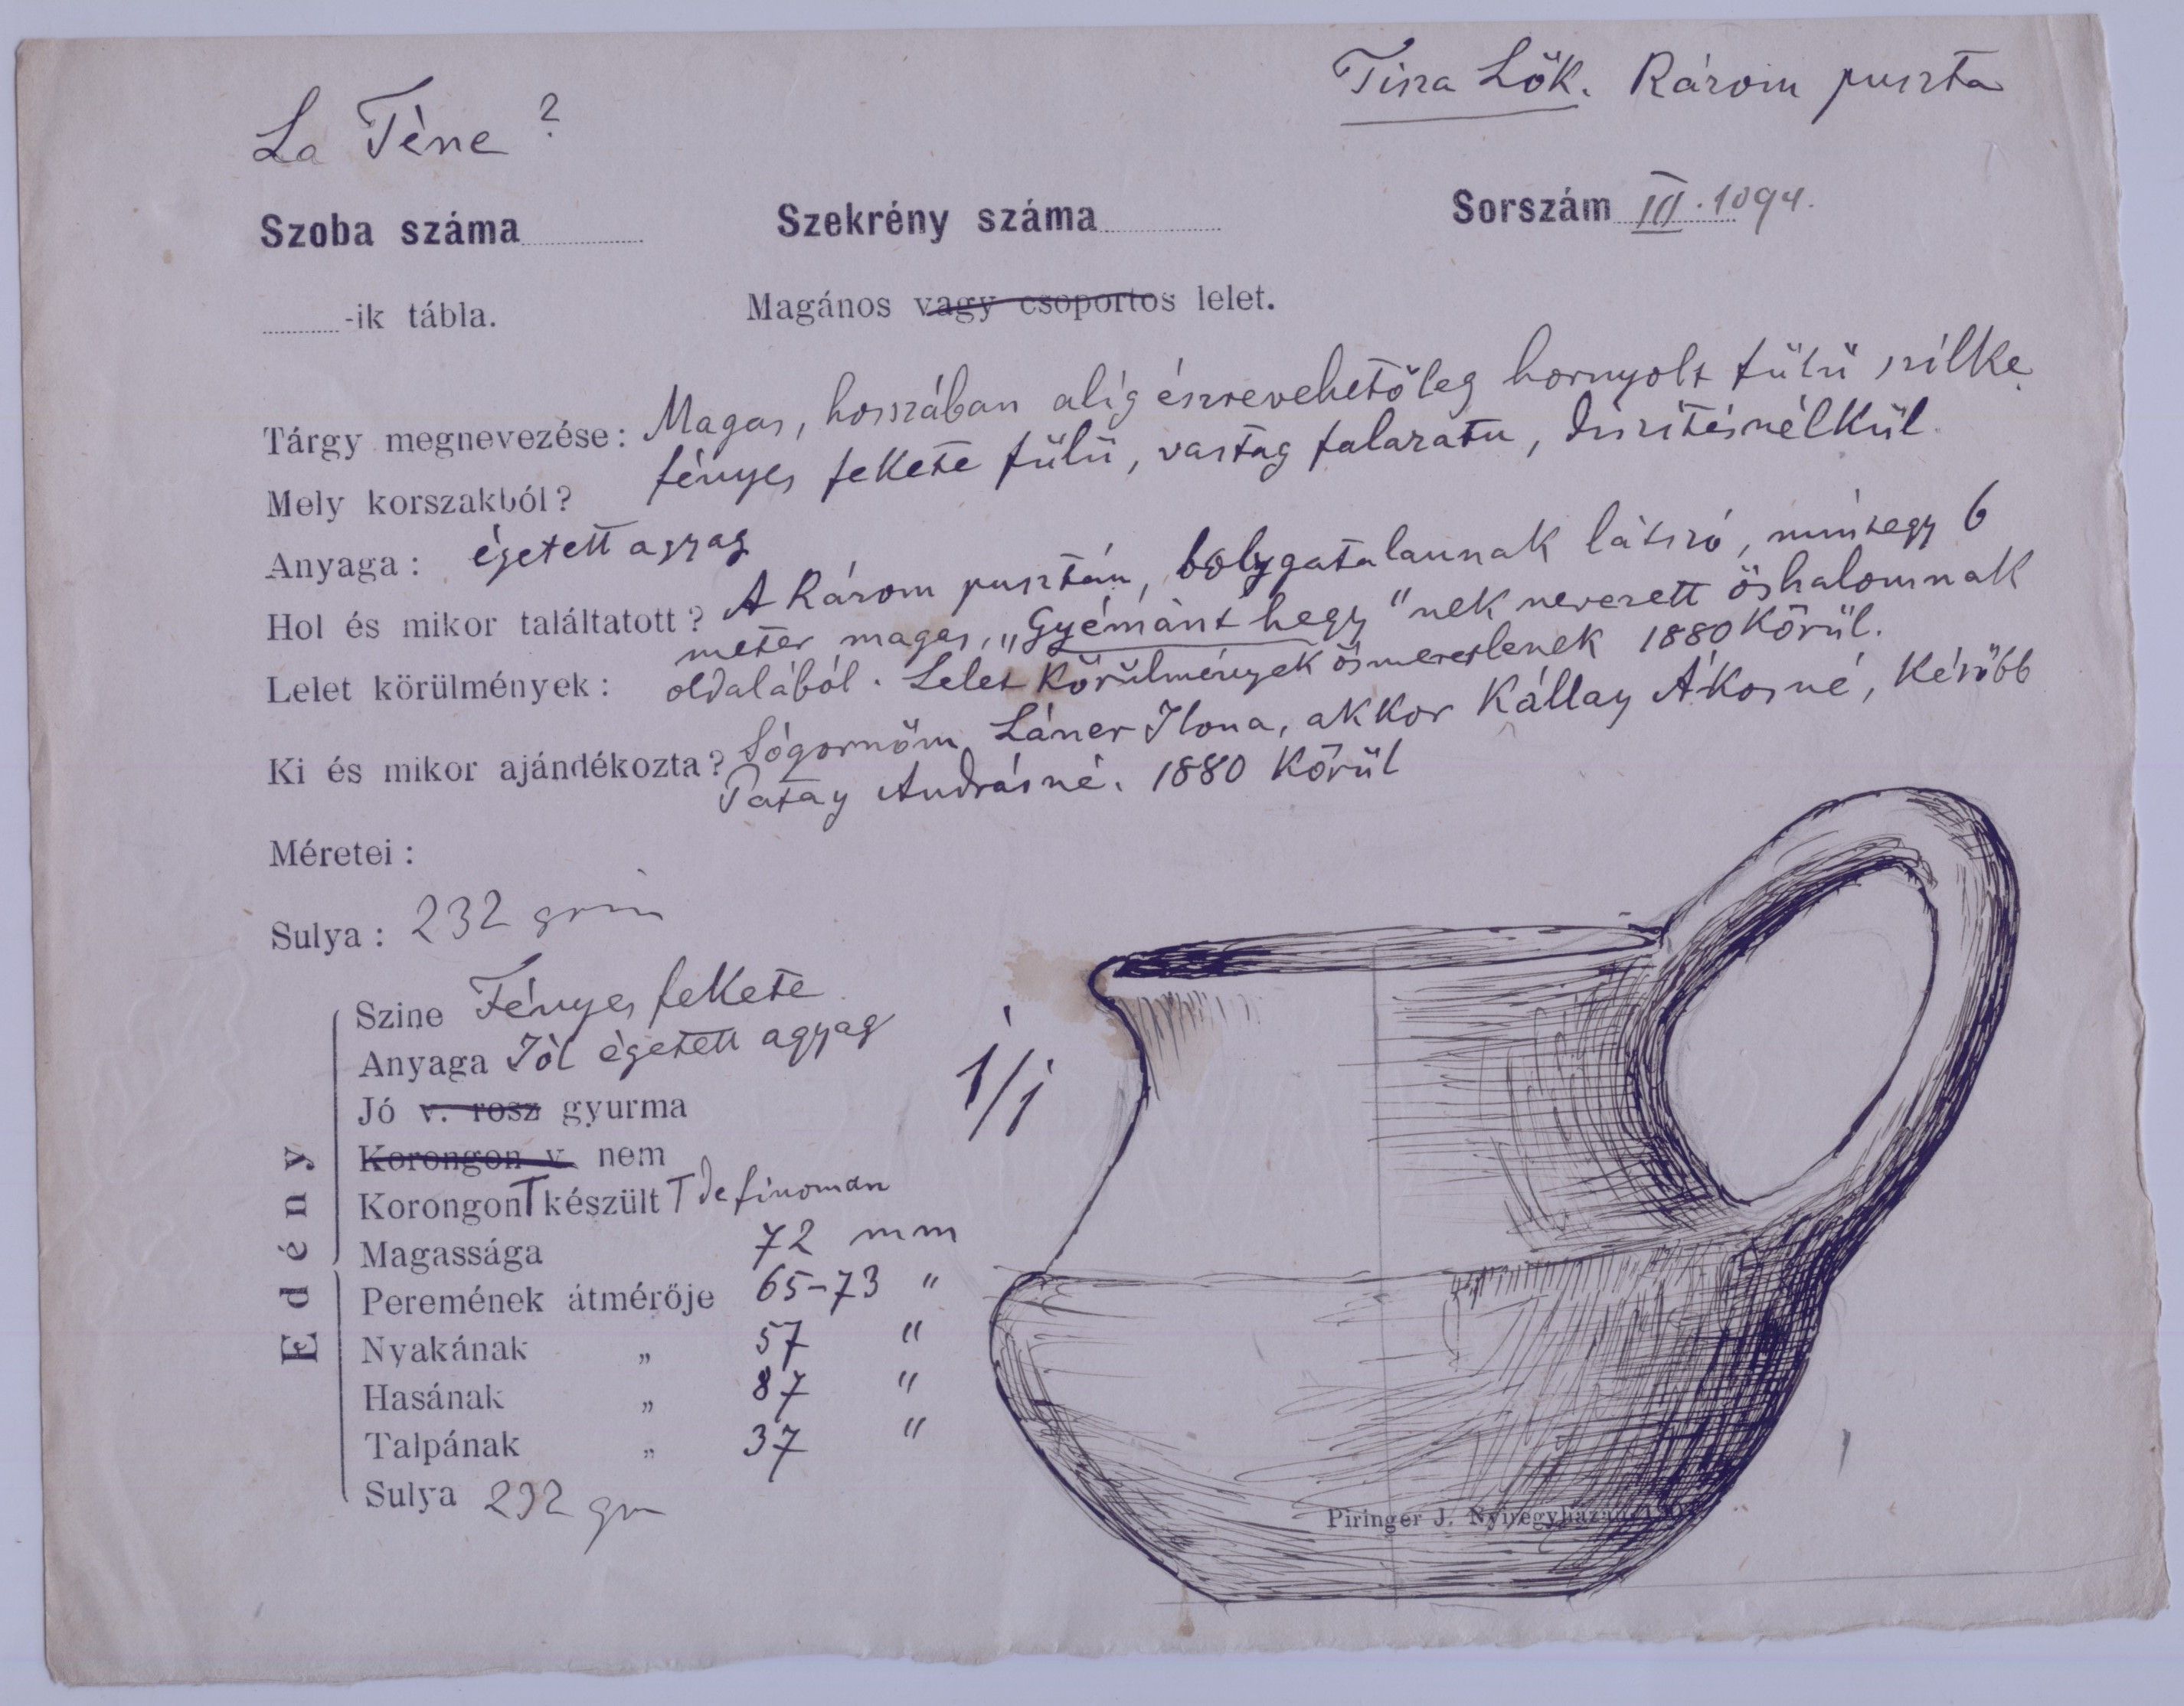 Tisza Lök. Rárom puszta
La Tène ?
Szoba száma Szekrény száma Sorszám III. 1094.
-ik tábla. Magános vagy csoportos lelet.
Tárgy megnevezése: Magas, hosszában alig észrevehetőleg hornyolt fülü szilke
fényes fekete fülü, vastag falazatu, diszitésnélkül.
Mely korszakból?
Anyaga: égetett agyag
Hol és mikor találtatott? A Rárom pusztán, bolygatalannak látszó, mintegy 6
meter magas, „Gyémánt hegy"nek nevezett őshalomnak
Lelet körülmények: oldalából. Lelet körülmények ösmeretlenek 1880 körül.
Ki és mikor ajándékozta? Sógornőm Láner Ilona, akkor Kállay Ákosné, később
Patay Andrásné. 1880 körül
Méretei:
Sulya: 232 grm
Edény
Szine Fényes fekete
Anyaga Jól égetett agyag
Jó v. rosz gyurma
Korongon v. nem
Korongon készült de finoman
Magassága 72 mm
Peremének átmérője 65-73 "
Nyakának „ 57 "
Hasának „ 87 "
Talpának „ 37 "
Sulya 232 gm
1/1
Piringer J. Nyíregyházán